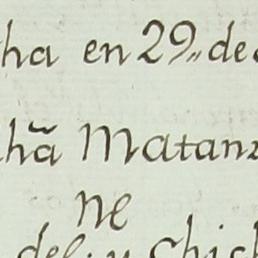 ha en 29,, de
hã Matanz
Ne
del. y Chich